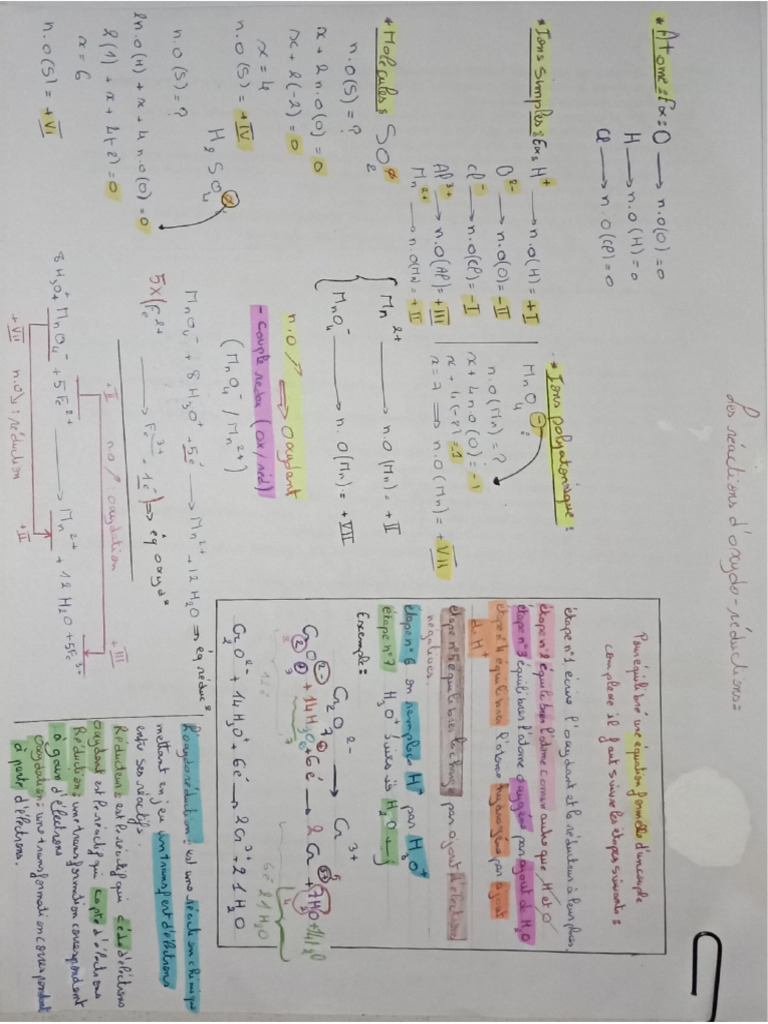 Les réactions d'oxydo-réductions =
* Atome : Ex : O → n.O(O) = 0
H → n.O(H) = 0
Cl → n.O(Cl) = 0
* Ions simples : Ex : H⁺ → n.O(H) = +I
O²⁻ → n.O(O) = -II
Cl⁻ → n.O(Cl) = -I
Al³⁺ → n.O(Al) = +III
Mn²⁺ → n.O(Mn) = +II
* Ions polyatomique :
MnO₄⁻ :
n.O(Mn) = ?
x + 4 n.O(O) = -1
x + 4(-2) = -1
x = 7 ⟹ n.O(Mn) = +VII
* Molécules : SO₂
n.O(S) = ?
x + 2 n.O(O) = 0
x + 2(-2) = 0
x = 4
n.O(S) = +IV
H₂SO₄
n.O(S) = ?
2n.O(H) + x + 4 n.O(O) = 0
2(1) + x + 4(-2) = 0
x = 6
n.O(S) = +VI
Mn²⁺ → n.O(Mn) = +II
MnO₄⁻ → n.O(Mn) = +VII
n.O ↗ → oxydant
- Couple redox (ox/réd)
(MnO₄⁻/Mn²⁺)
MnO₄⁻ + 8H₃O⁺ + 5é → Mn²⁺ + 12H₂O ⟹ éq réduc°
5X(Fe²⁺ → Fe³⁺ + 1é) ⟹ éq oxyd°
+II n.O ↗ oxydation +III
8H₃O⁺ + MnO₄⁻ + 5Fe²⁺ → Mn²⁺ + 12H₂O + 5Fe³⁺
+VII n.O ↘ : réduction +II
Pour équilibré une équation formelle d'un couple
complexe il faut suivre les étapes suivants :
étape n°1 écrire l'oxydant et le réducteur à leur place.
étape n°2 équilibrer l'atome commun autre que H et O
étape n°3 équilibrer l'atome oxygéne par ajout de H₂O
étape n°4 équilibrer l'atome hydrogéne par ajout
de H⁺
étape n°5 équilibre la charge par ajout d'électrons
négatives.
étape n°6 on remplace H⁺ par H₃O⁺
étape n°7 H₃O⁺
Exemple :
Cr₂O₇²⁻ → Cr³⁺
Cr₂O₇²⁻ + 14H₃O⁺ + 6é → 2Cr³⁺ + 21H₂O
L'oxydoréduction : est une réaction chimique
mettant en jeu un transfert d'éléctrons
entre ses réactifs.
Réducteur : est le réactif qui céde d'éléctrons
oxydant est le réactif qui capte d'éléctrons
Réduction : une transformation correspondant
à gain d'éléctrons
oxydation : une transformation correspondant
à perte d'éléctrons.